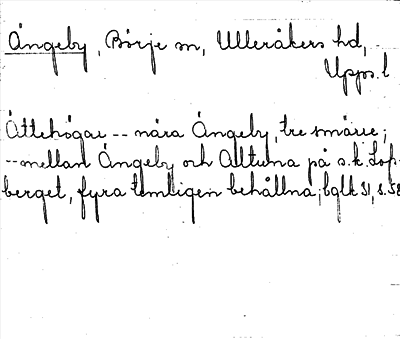 Ängeby, Börje sn, Ulleråkers hd,
Upps. l
Ättehögar -- nära Ängeby, tre smärre;
-- mellan Ängeby och Altuna på s.k. Lop-
berget, fyra temligen behållna; bglk 31, s. 58